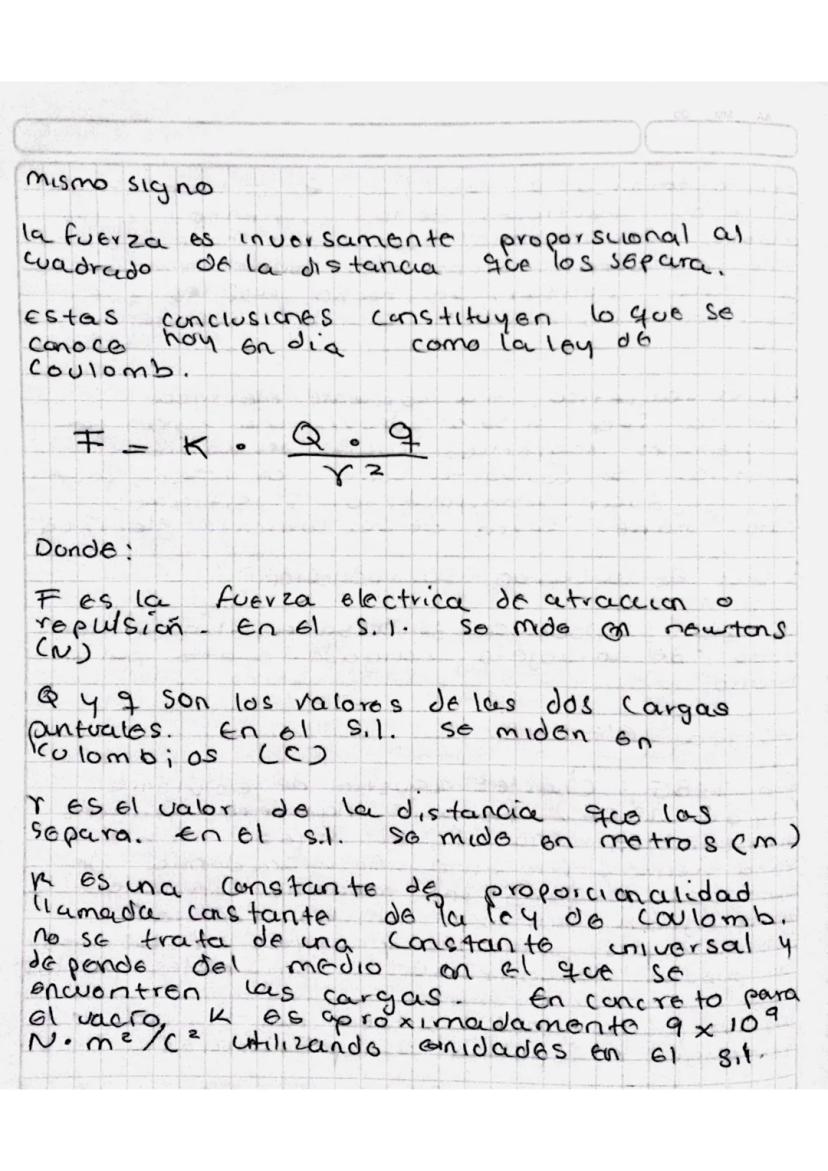 mismo signo
la fuerza es inversamente proporsional al
cuadrado de la distancia que los separa.
Estas conclusiones constituyen lo que se
conoce hoy en dia como la ley de
Coulomb.
F = K · Q · q / r²
Donde:
F es la fuerza electrica de atraccion o
repulsión. En el S.I. se mide en newtons
(N)
Q y q son los valores de las dos cargas
puntuales. En el S.I. se miden en
culombios (C)
r es el valor de la distancia que las
separa. En el S.I. se mide en metros (m)
K es una constante de proporcionalidad
llamada constante de la ley de Coulomb.
no se trata de una constante universal y
depende del medio en el que se
encuentren las cargas. En concreto para
el vacio, K es aproximadamente 9 x 10⁹
N·m²/C² utilizando unidades en el S.I.